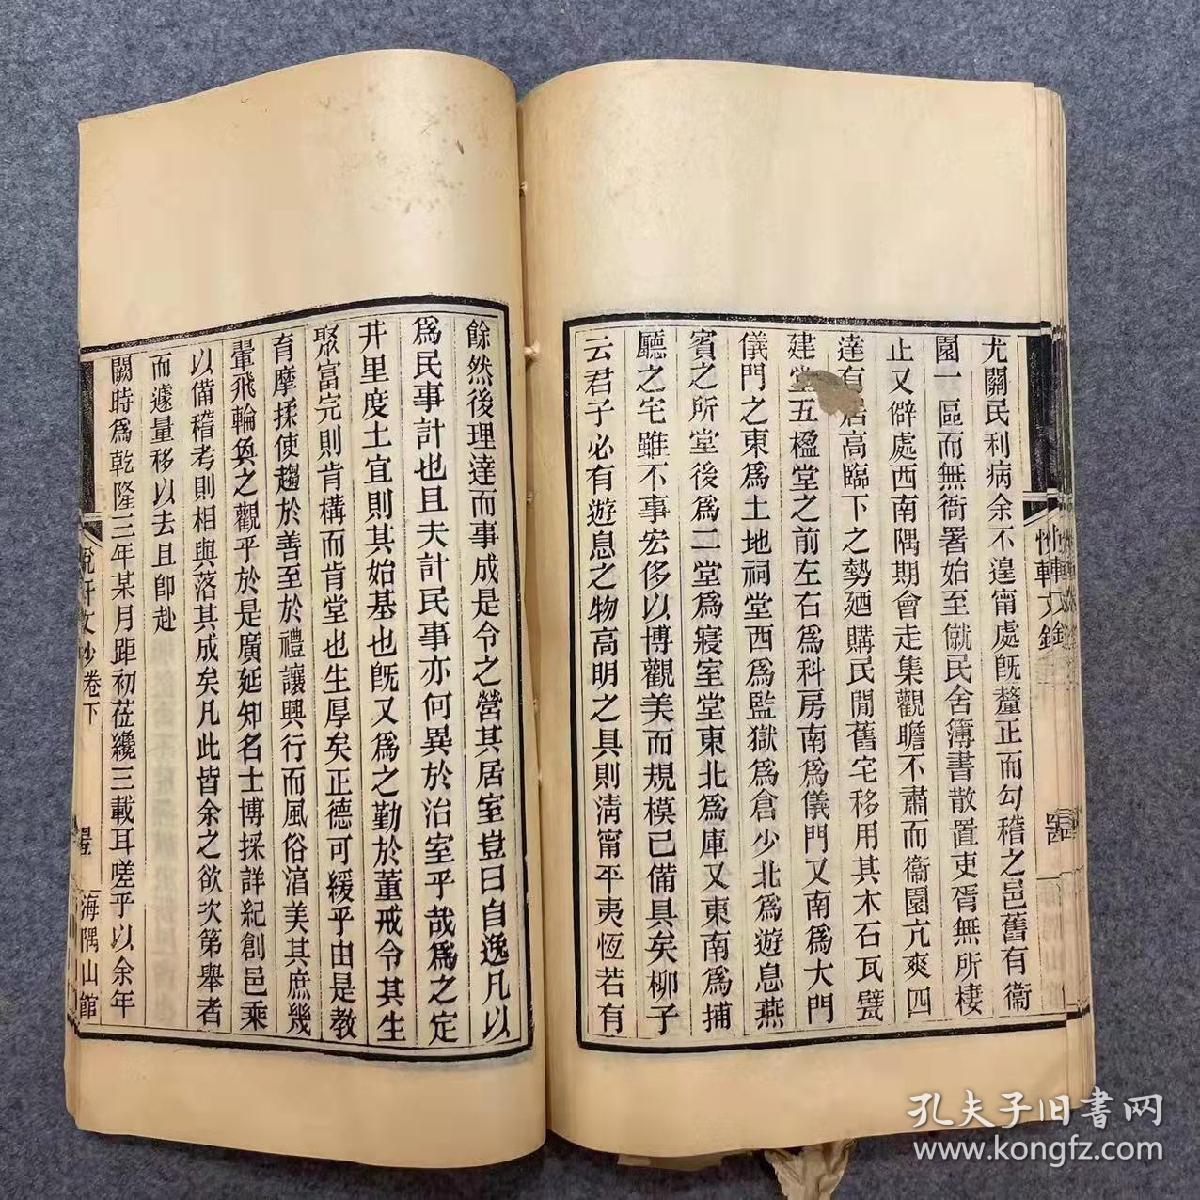 尤關民利病余不遑甯處旣釐正而勾稽之邑舊有衞
園一區而無衙署始至僦民舍簿書散置吏胥無所棲
止又僻處西南隅期會走集觀瞻不肅而衞園亢爽四
達有居高臨下之勢廼購民閒舊宅移用其木石瓦甓
建堂五楹堂之前左右爲科房南爲儀門又南爲大門
儀門之東爲土地祠堂西爲監獄爲倉少北爲遊息燕
賓之所堂後爲二堂爲寢室堂東北爲庫又東南爲捕
廳之宅雖不事宏侈以博觀美而規模已備具矣柳子
云君子必有遊息之物高明之具則淸甯平夷恆若有
餘然後理達而事成是令之營其居室豈曰自逸凡以
爲民事計也且夫計民事亦何異於治室乎哉爲之定
井里度土宜則其始基也旣又爲之勤於董戒令其生
聚富完則肯構而肯堂也生厚矣正德可緩乎由是敎
育摩揉使趨於善至於禮讓興行而風俗湻美其庶幾
翬飛輪奐之觀乎於是廣延知名士博採詳紀創邑乘
以備稽考則相與落其成矣凡此皆余之欲次第舉者
而遽量移以去且卽赴
闕時爲乾隆三年某月距初莅纔三載耳嗟乎以余年
文鈔卷下
海隅山館
孔夫子旧书网
www.kongfz.com